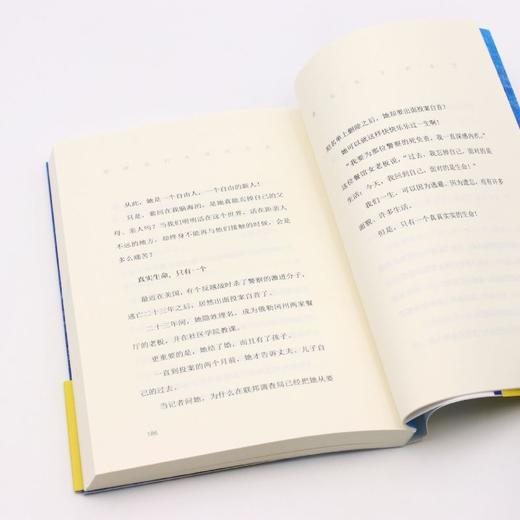 从此，她是一个自由人，一个自由的新人！
只是，萦回在我脑海的，是她真能忘掉自己的父
母、亲人吗？当我们明明活在这个世界，活在距亲人
不远的地方，却终身不能再与他们接触的时候，会是
多么痛苦？
真实生命，只有一个
最近在美国，有个反越战时杀了警察的激进分子，
逃亡二十三年之后，居然出面投案自首了。
二十三年间，她隐姓埋名，成为俄勒冈州两家餐
厅的老板，并在社区学院教课。
更重要的是，她结了婚，而且有了孩子。
一直到投案的两个月前，她才告诉丈夫、儿子自
己的过去。
当记者问她，为什么在联邦调查局已经把她从要
186
犯名单上删除之后，她却要出面投案自首？
她可以就这样快快乐乐过一生啊！
“我要为那位警察的死负责，我一直深感内疚。”
这位餐馆女老板说，“过去，我忘掉自己，面对的是
生活；今天，我回到自己，面对的是生命！”
我们一生，可以因为逃避、因为遗忘，而有许多
面貌、许多生活。
但是，只有一个真真实实的生命！